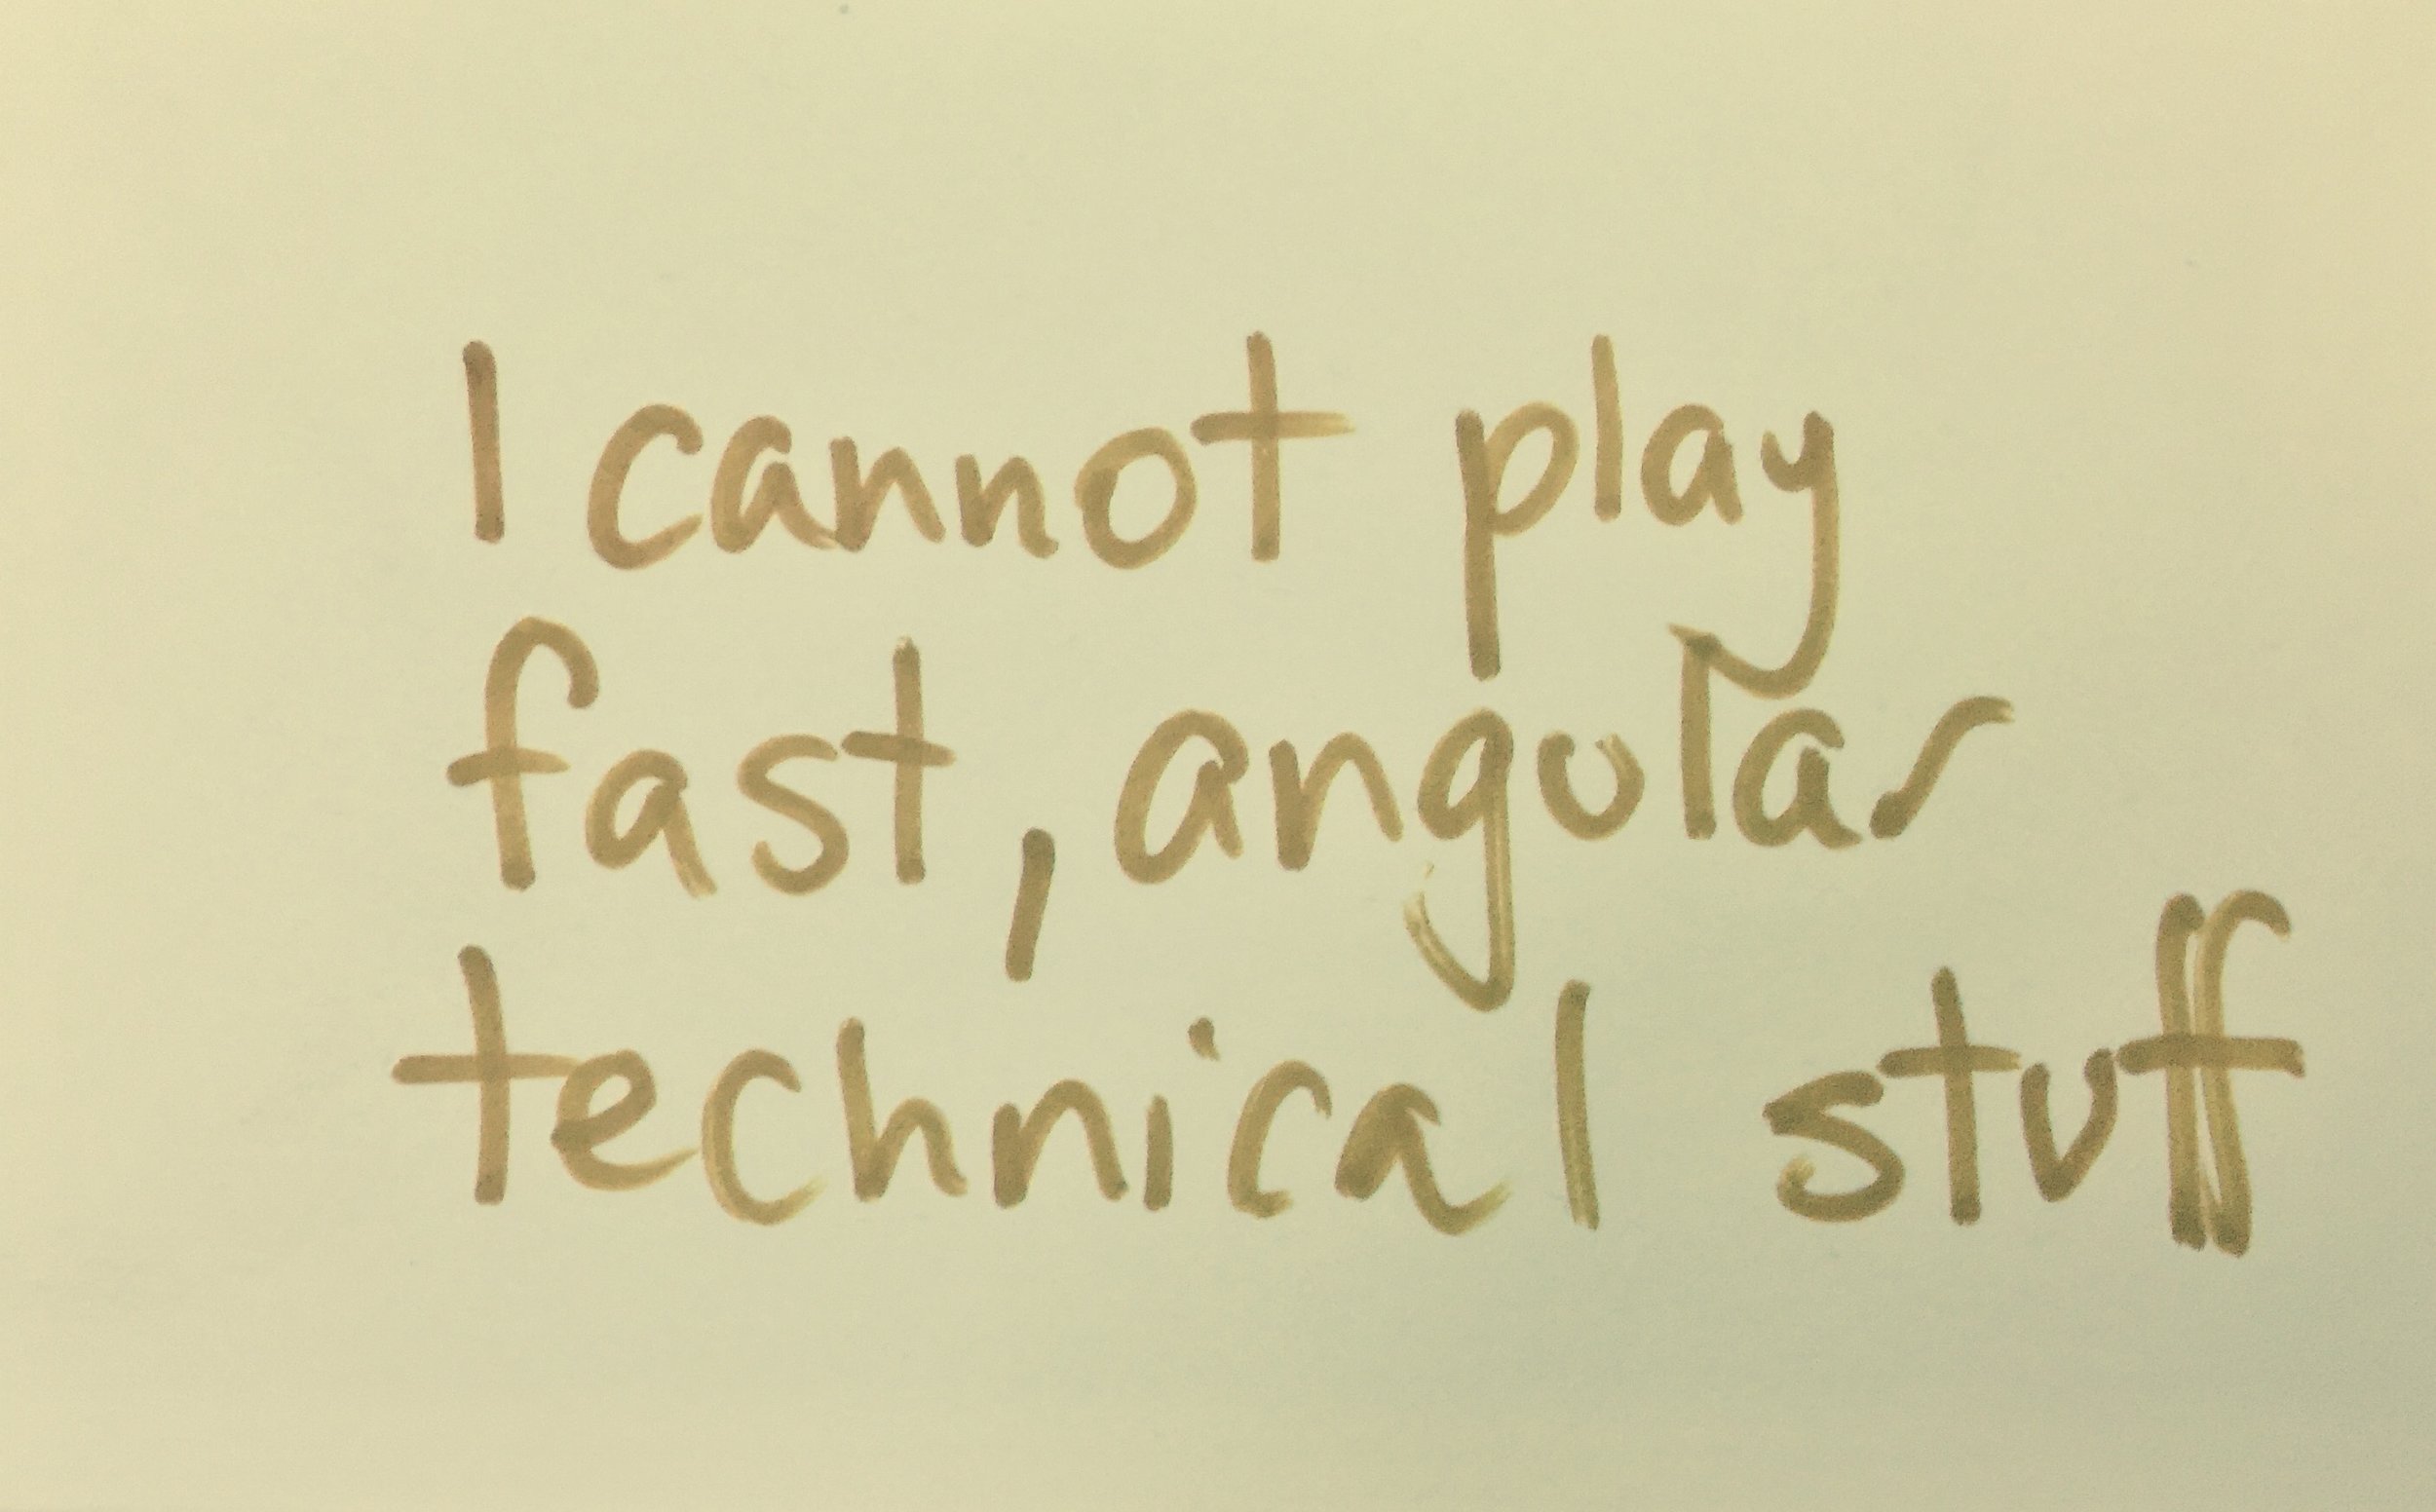 I cannot play
fast, angular
technical stuff